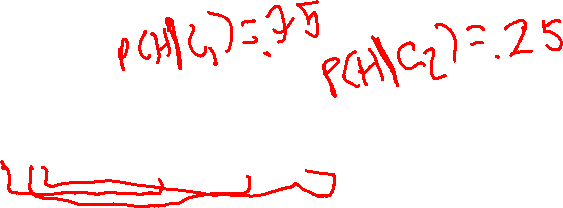 P(H|C1)=.75
P(H|C2)=.25